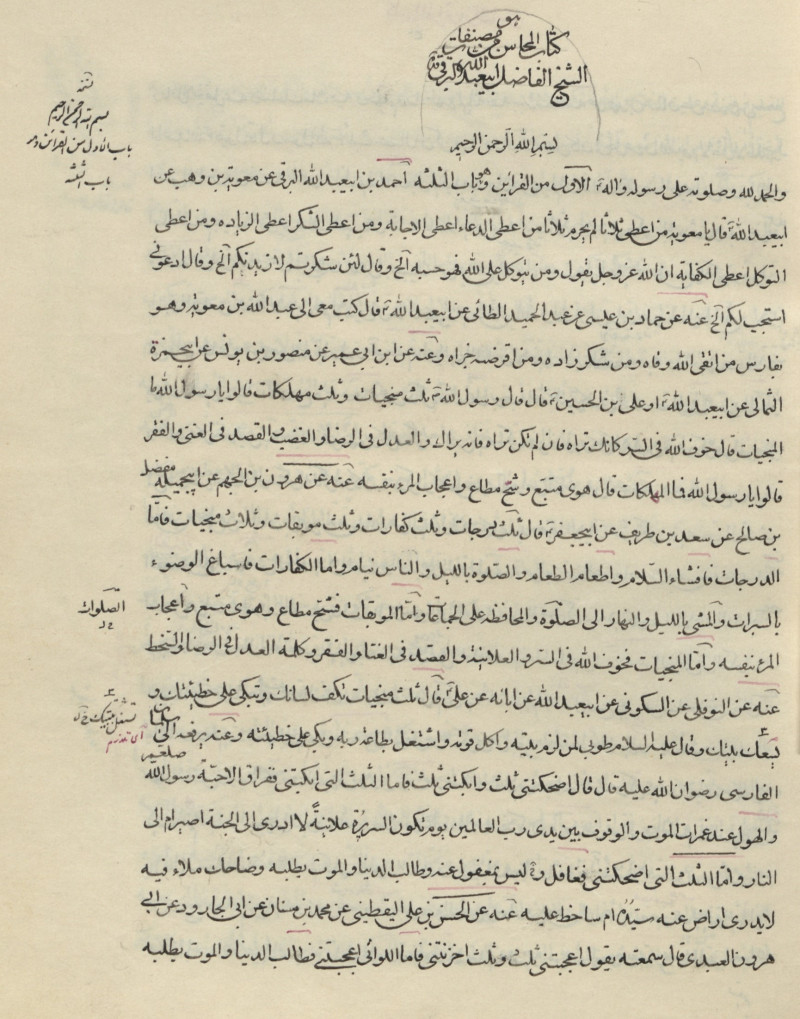 هو
كتاب المحاسن من مصنفات
الشيخ الفاضل ابيعبد الله البرقي
بسم الله الرحمن الرحيم
والحمد لله وصلوته على رسوله واله الاول من القراين وهو باب الثلثه احمد بن ابيعبد الله البرقي عن معوية بن وهب عن
ابيعبد الله قال يا معوية من اعطى ثلاثا لم يحرم ثلاثا من اعطى الدعاء اعطى الاجابة ومن اعطى الشكر اعطى الزياده ومن اعطى
التوكل اعطى الكفاية ان الله عز وجل يقول ومن يتوكل على الله فهو حسبه الخ وقال لئن شكرتم لازيدنكم الخ وقال ادعونى
استجب لكم الخ عنه عن حماد بن عيسى عن عبد الحميد الطائى عن ابيعبد الله قال كتب معى الى عبد الله بن معوية وهو
بفارس من اتقى الله وقاه ومن شكر زاده ومن اقرضه جزاه وعنه عن ابن ابى عمير عن منصور بن يونس عن ابيحمزة
الثمالى عن ابيعبد الله او على بن الحسين قال قال رسول الله ثلث منجيات وثلث مهلكات قالوا يا رسول الله ما
المنجيات قال خوف الله فى السر كانك تراه فان لم تكن تراه فانه يراك والعدل فى الرضا والغضب والقصد فى الغنى والفقر
قالوا يا رسول الله فما المهلكات قال هوى متبع وشح مطاع واعجاب المرء بنفسه عنه عن هرون بن الجهم عن ابيجميله مفضل
بن صالح عن سعد بن طريف عن ابيجعفر قال ثلث درجات وثلث كفارات وثلث موبقات وثلاث منجيات فاما
الدرجات فافشاء السلام واطعام الطعام والصلوة بالليل والناس نيام واما الكفارات فاسباغ الوضوء
بالسبرات والمشى بالليل والنهار الى الصلوة والمحافظه على الجماعة واما الموبقات فشح مطاع وهوى متبع واعجاب
المرء بنفسه واما المنجيات فخوف الله فى السر والعلانية والقصد فى الغنا والفقر وكلمة العدل فى الرضا والسخط
عنه عن النوفلى عن السكونى عن ابيعبد الله عن ابائه عن على قال ثلث منجيات تكف لسانك وتبكى على خطيئتك و
يسعك بيتك وقال عليه السلام طوبى لمن لزم بيته واكل قوته واشتغل بطاعة ربه وبكى على خطيئته وعنه يرفعه الى سلمان
الفارسى رضوان الله عليه قال قال اضحكتنى ثلث وابكتنى ثلث فاما الثلث التى ابكتنى ففراق الاحبة رسول الله
والهول عند غمرات الموت والوقوف بين يدى رب العالمين يوم تكون السريرة علانية لا ادرى الى الجنة اصير ام الى
النار واما الثلث التى اضحكتنى فغافل ليس بمغفول عنه وطالب الدنيا والموت يطلبه وضاحك ملاء فيه
لا يدرى اراض عنه سيده ام ساخط عليه عنه عن الحسن بن على اليقطينى عن محمد بن سنان عن ابى الجارود عن ابى
هرون العبدى قال سمعته يقول اعجبتنى ثلث وثلث احزنتنى فاما اللواتى اعجبتنى فطالب الدنيا والموت يطلبه
بسم الله الرحمن الرحيم
باب الاول من القراين وهو
باب الثلثه
الصلوات